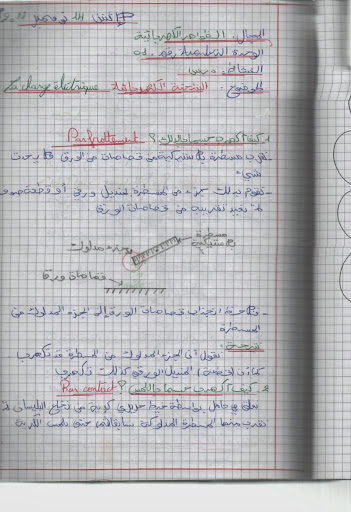 المجال: الظواهر الكهربائية
الوحدة التعليمية رقم: 01
النشاط: درس
الموضوع: الشحنة الكهربائية La charge électrique
كيف أكهرب جسما بالدلك؟ Par frottement
- نقرب مسطرة بلاستيكية من قصاصات من الورق فلا يحدث شيء
- نقوم بدلك جزء من المسطرة بمنديل ورقي أو قطعة صوف
ثم نعيد تقريبه من قصاصات الورق
مسطرة بلاستيكية
جزء مدلوك
قصاصات ورق
- نلاحظ انجذاب قصاصات الورق إلى الجزء المدلوك من
المسطرة
نتيجة:
نقول أن الجزء المدلوك من المسطرة قد تكهرب
كما أن المنديل الورقي كذلك تكهرب
كيف أكهرب جسما باللمس؟ Par contact
نعلق في حامل بواسطة خيط كرية من نخاع البيلسان ثم
نقرب منها المسطرة المدلوكة سابقا حتى تلمس الكرية